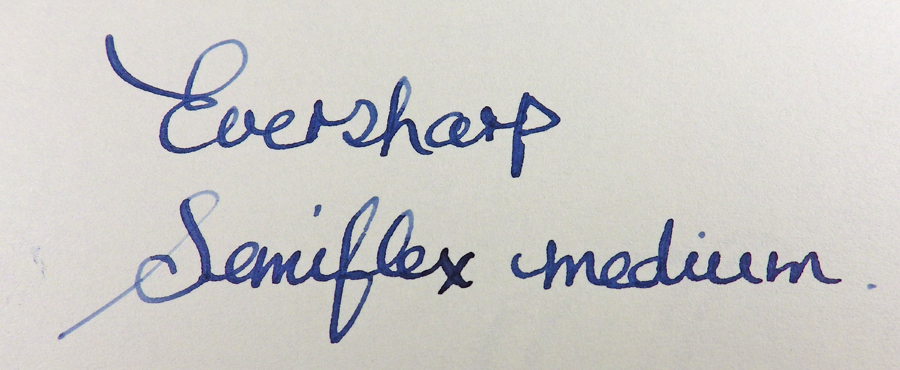 Eversharp
Semiflex medium.